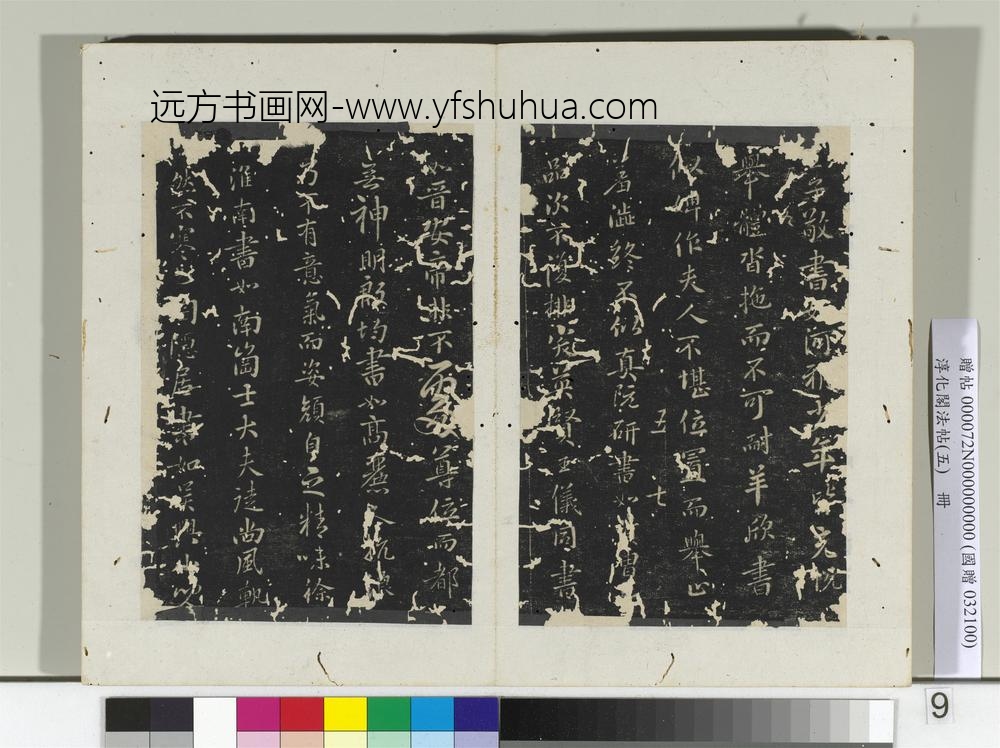 远方书画网-www.yfshuhua.com
子敬書如河
少年
舉體沓拖而不可耐羊欣書
作夫人不堪位置而舉止
羞澀終不似真阮研書如
五 七
品次不復排突英賢王儀同書
晉安帝
不
尊位而都
無神明殷均書如高麗人抗浪
乃不有意氣而姿顏自乏精味徐
淮南書如南岡士大夫徒尚風軌
然不寒
隱居書如吳興小
贈帖 000072N000000000 (國贈 032100)
淳化閣法帖(五) 冊
9